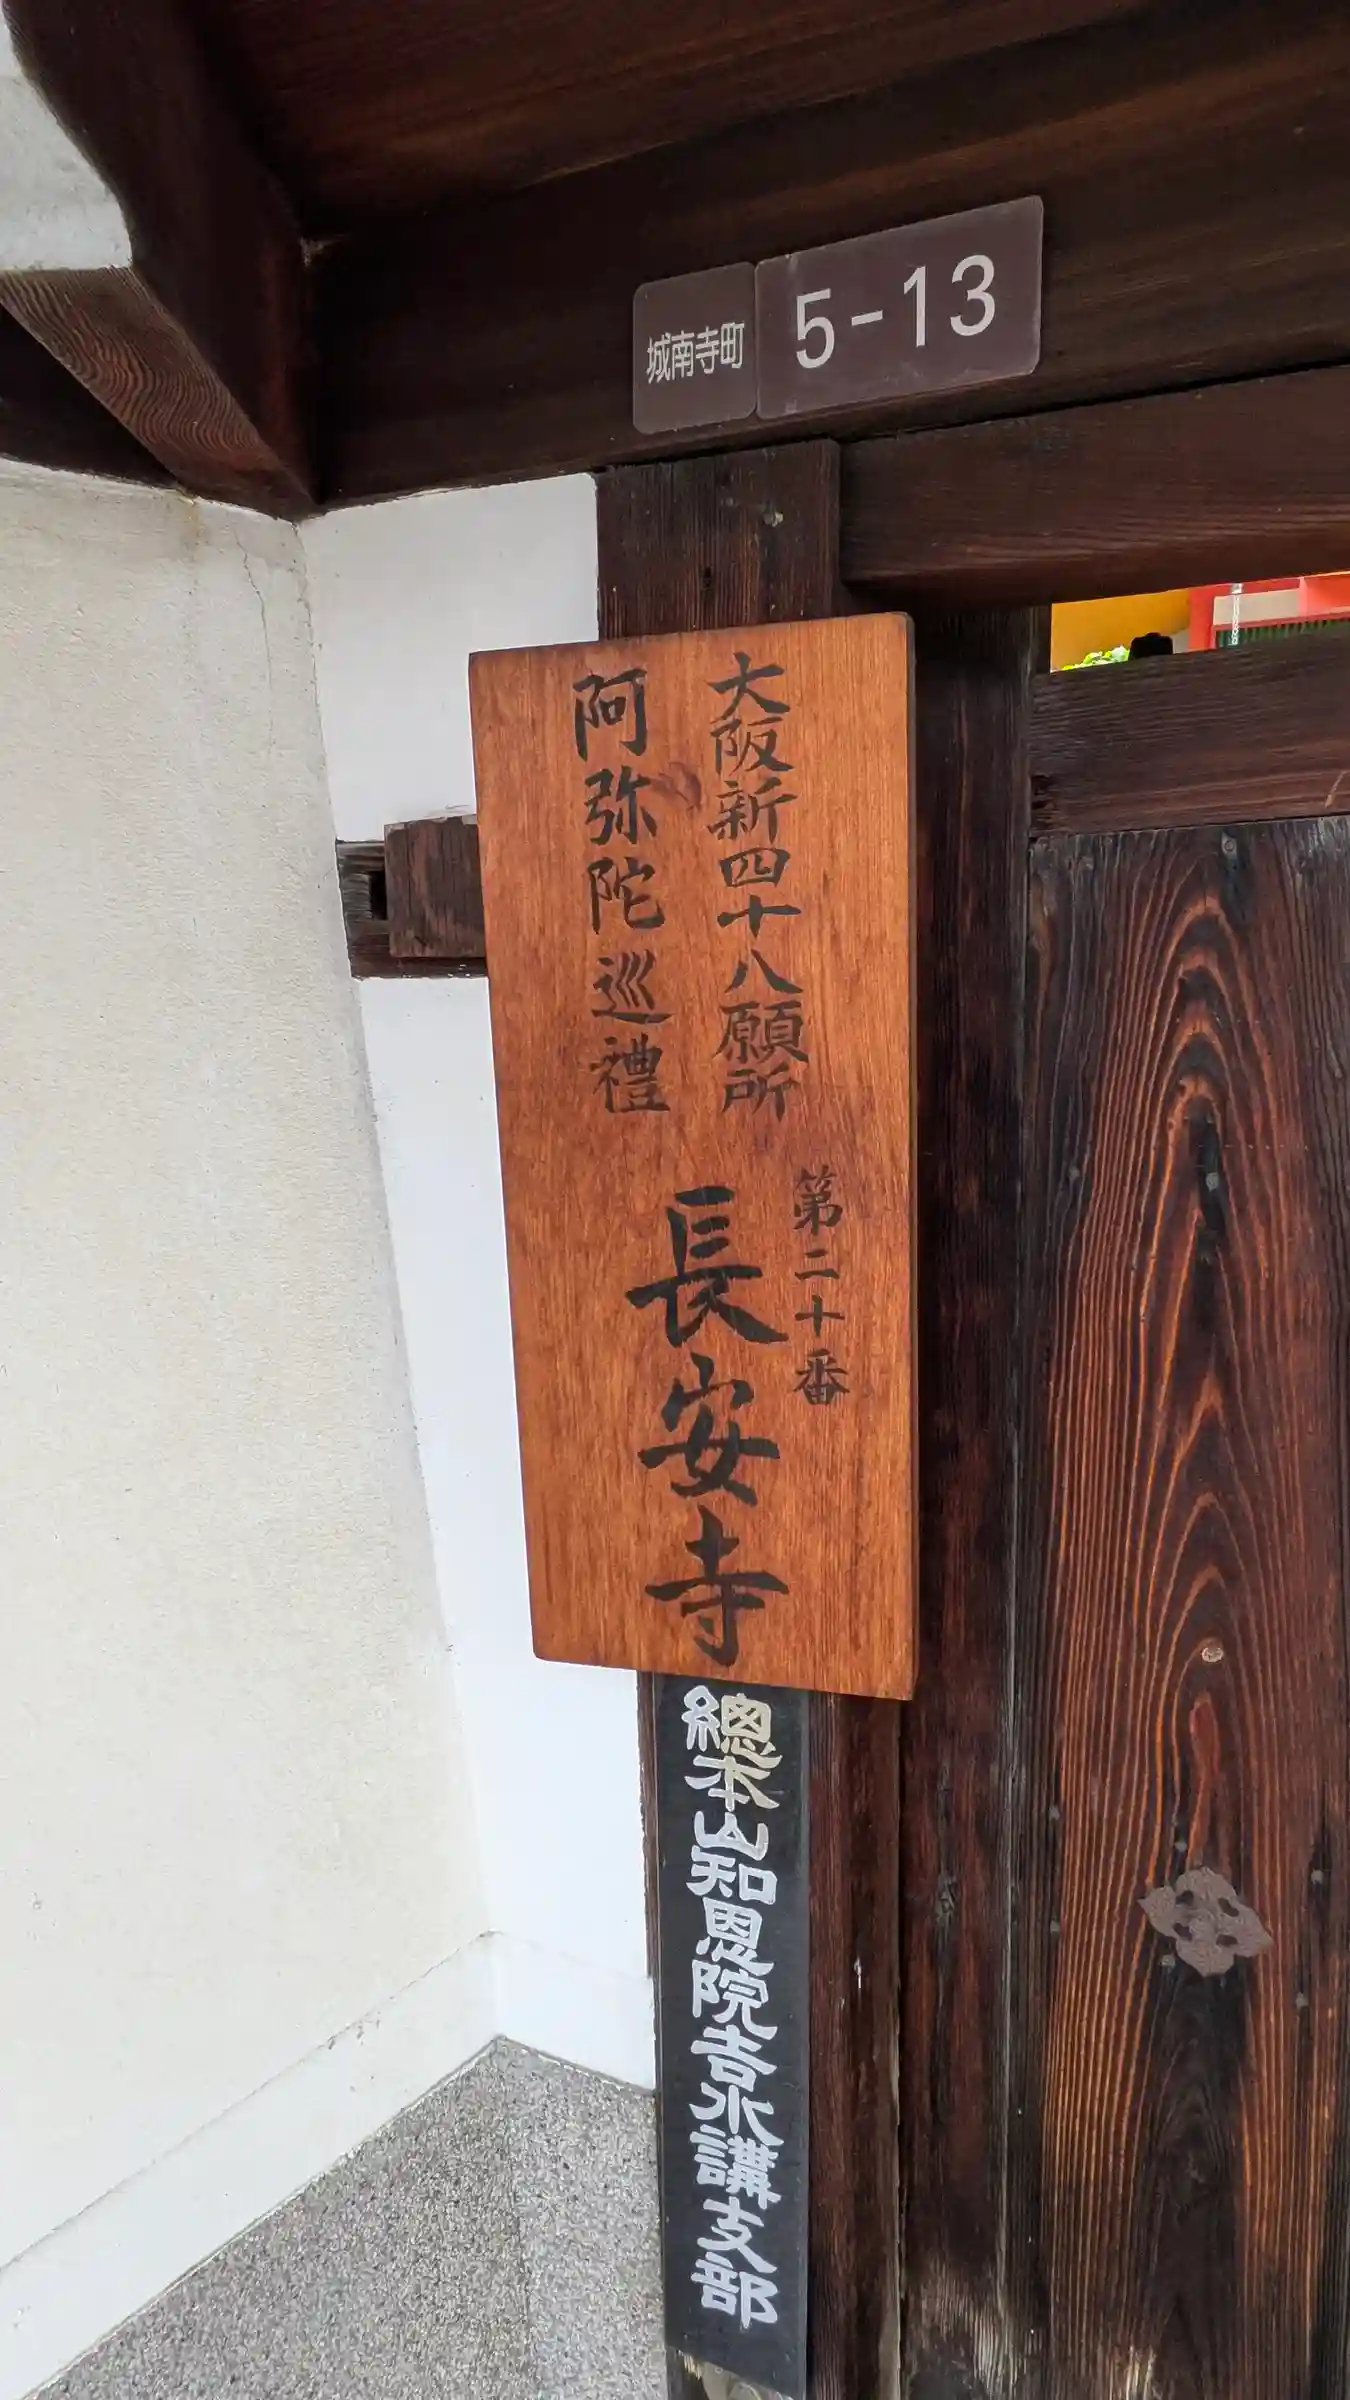 城南寺町 5-13
大阪新四十八願所
阿弥陀巡禮
第二十番
長安寺
總本山知恩院吉水講支部